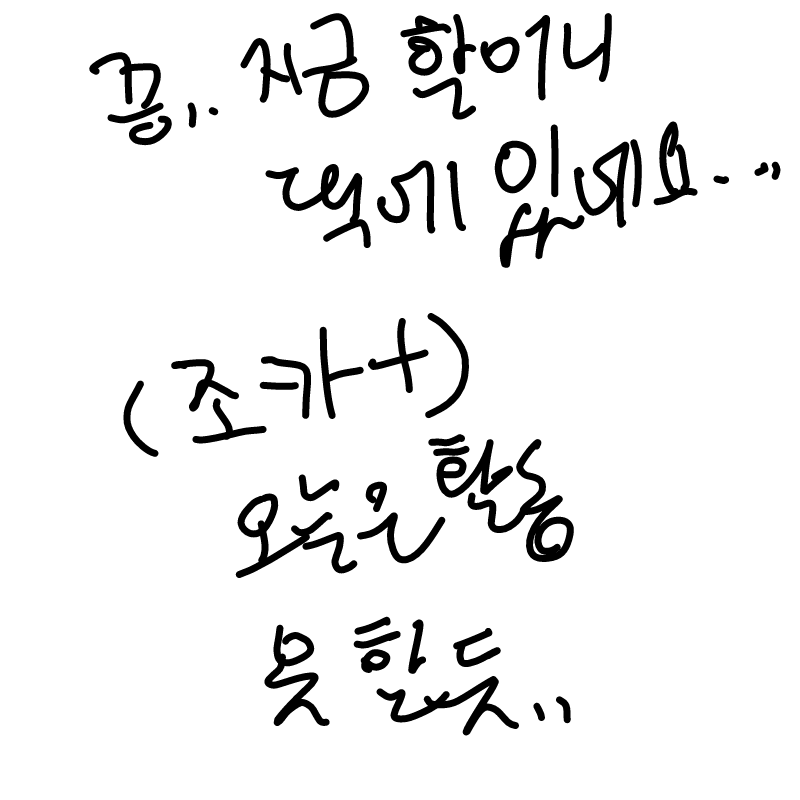 끙,.. 지금 할머니
댁에 있네요..;;
(조카+)
오늘은 활동
못 할듯,,